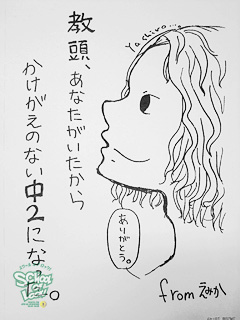 教頭、
あなたがいたから
かけがえのない中2になった。
Yashiro...
ありがとう。
from えみか
SCHOOL OF LOCK!